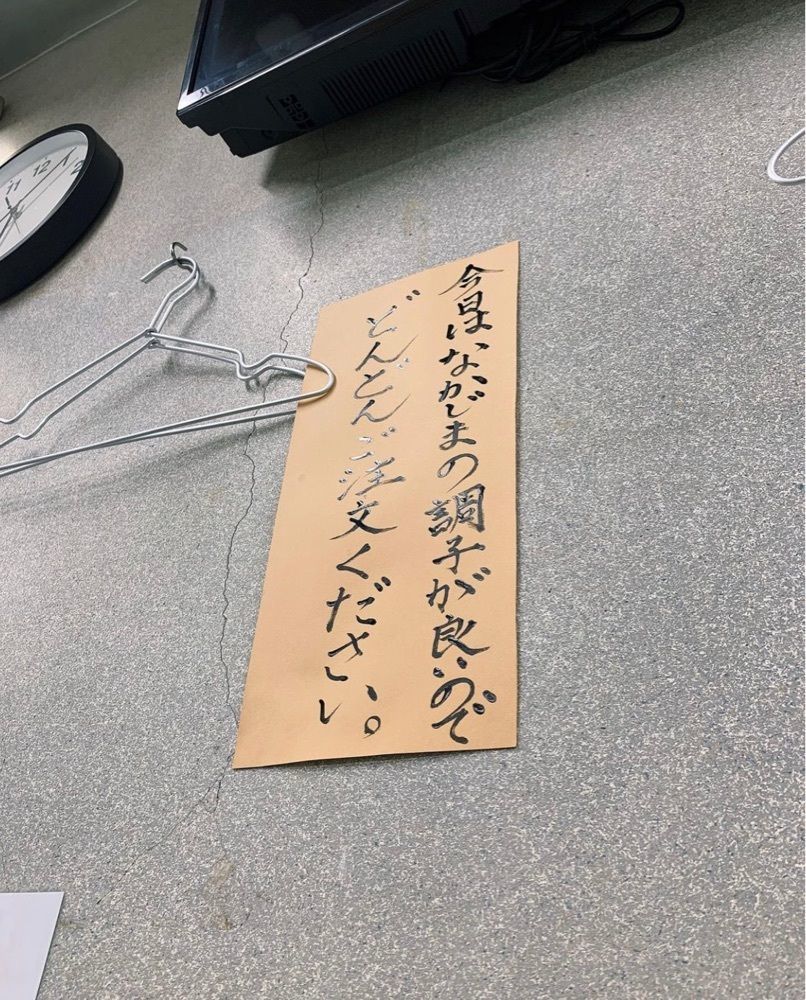 今日はながじまの調子が良いので
どんどんご注文ください。
11
12
1
2